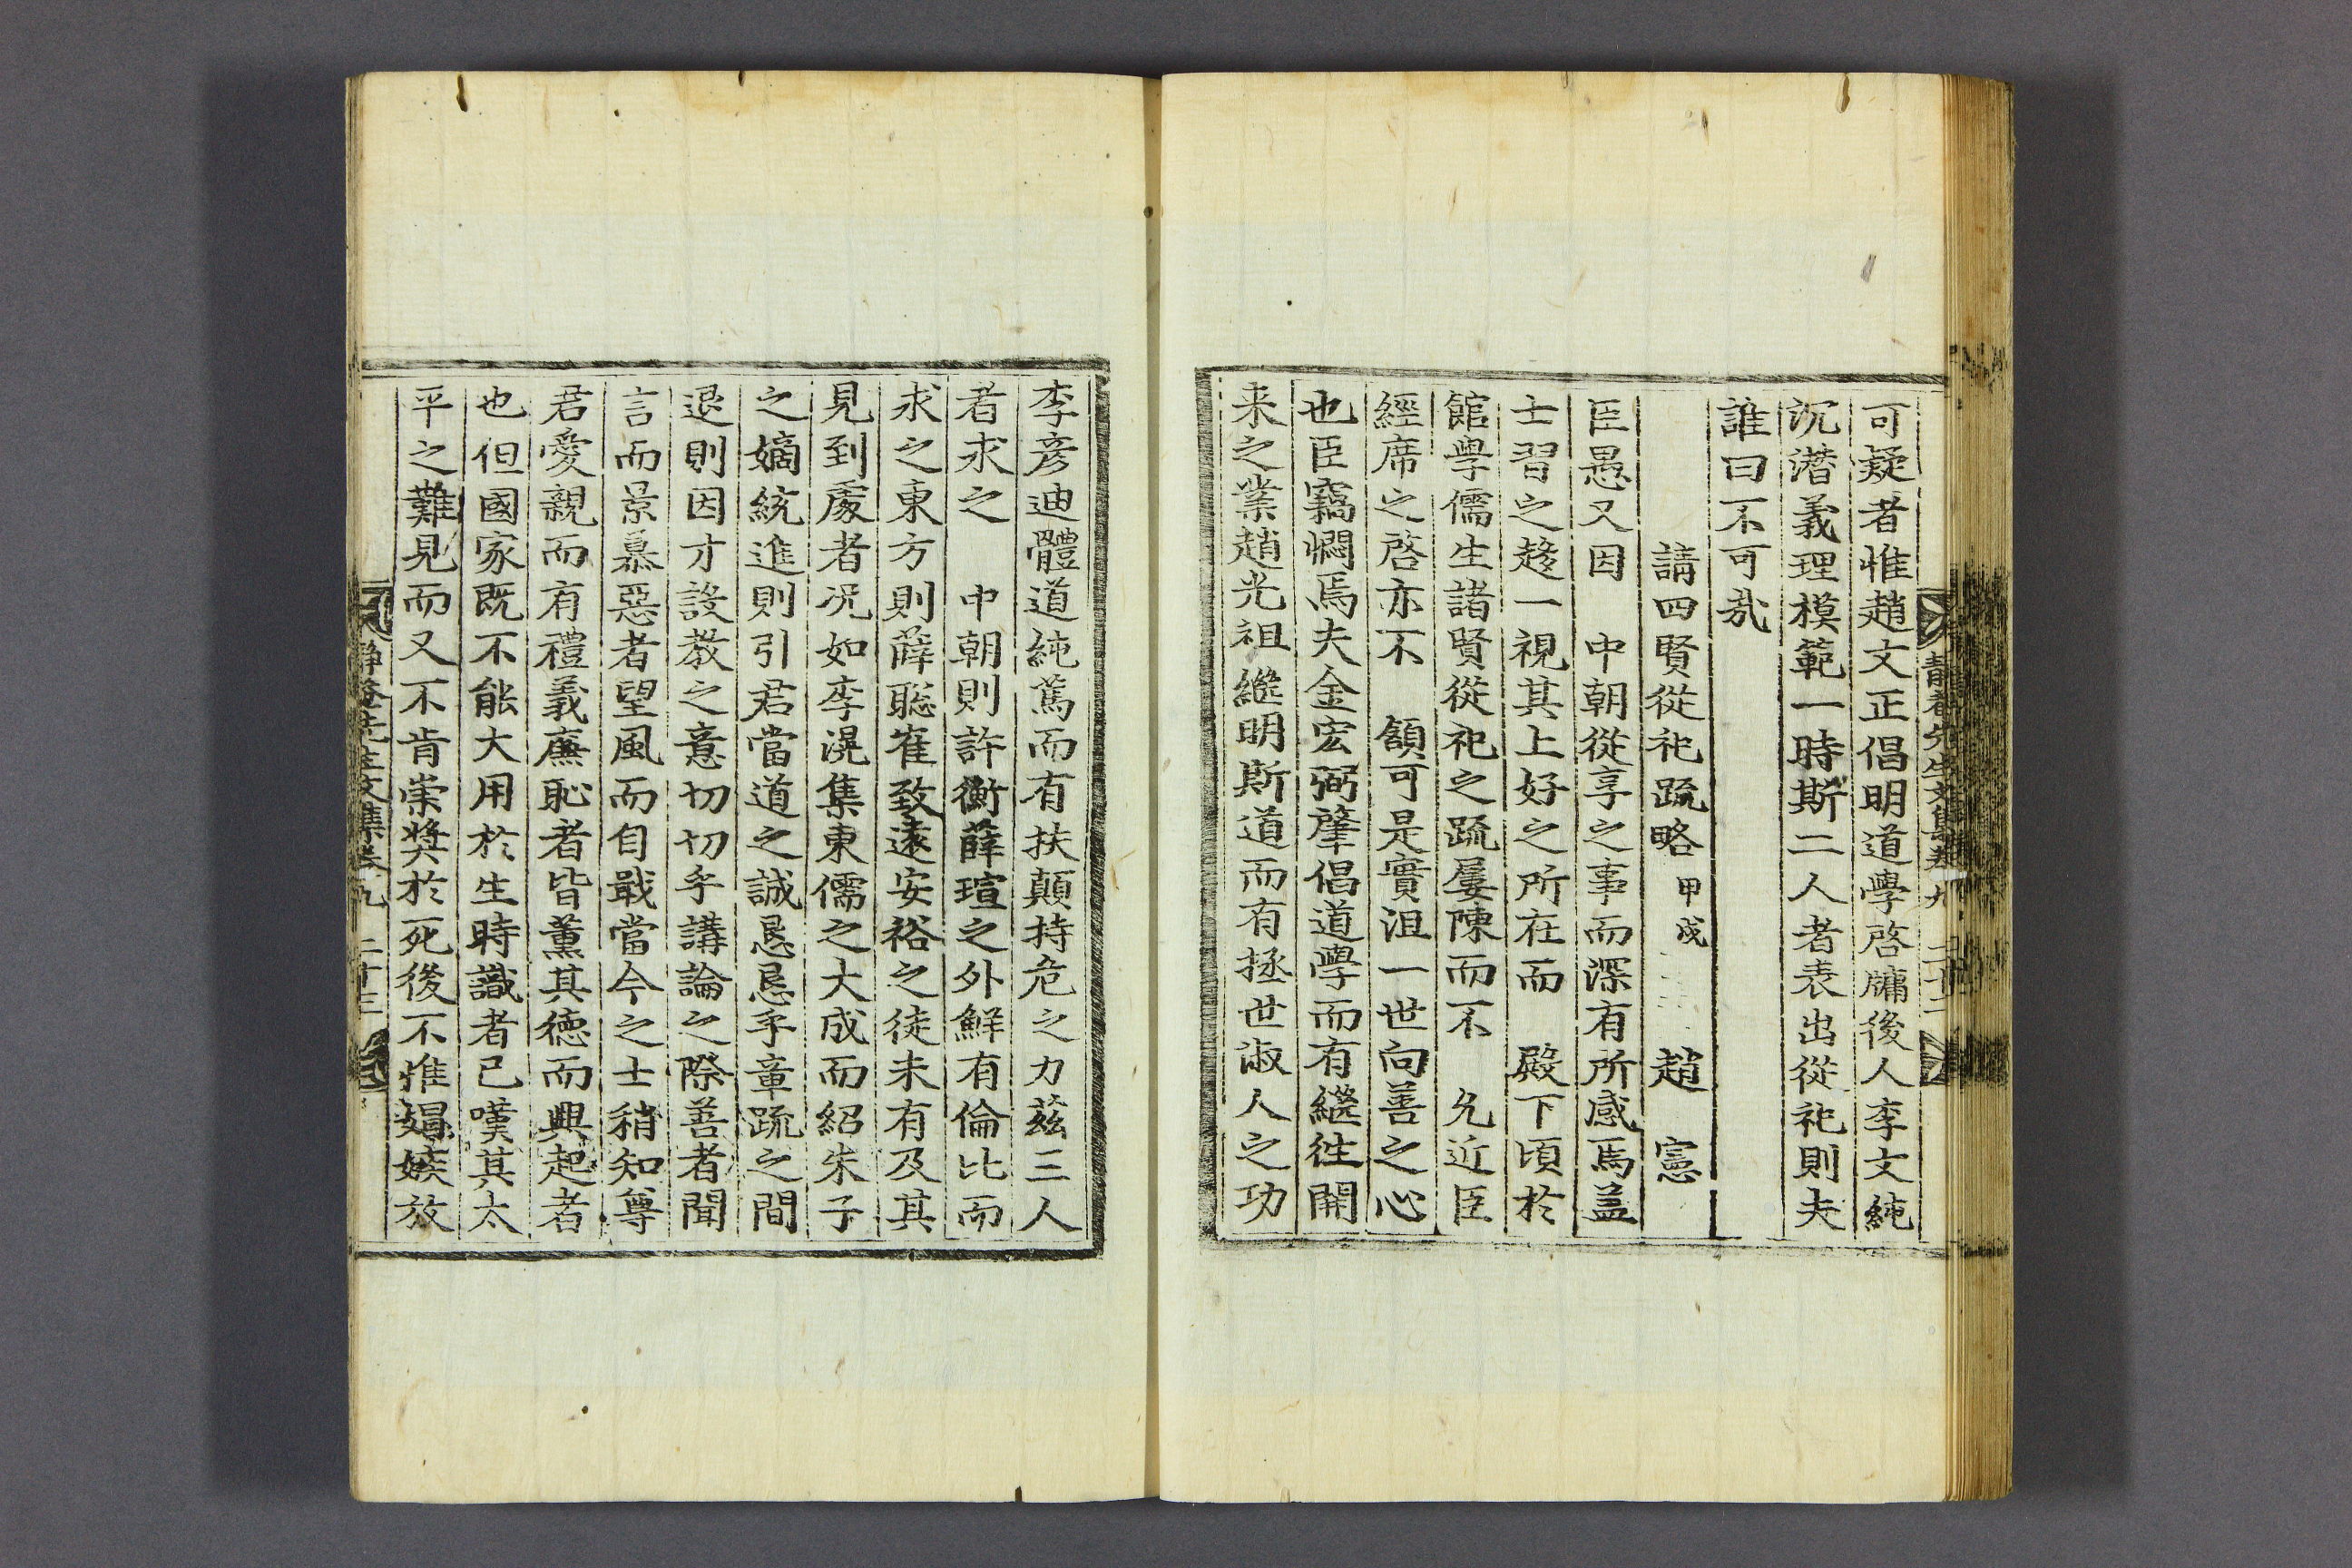 可疑者惟趙文正倡明道學啓牖後人李文純
沉潛義理模範一時斯二人者表出從祀則夫
誰曰不可哉
請四賢從祀疏略 甲戌 趙 憲
臣愚又因 中朝從享之事而深有所感焉盖
士習之趍一視其上好之所在而 殿下頃於
館學儒生諸賢從祀之疏屢陳而不 允近臣
經席之啓亦不 頷可是實沮一世向善之心
也臣竊憫焉夫金宏弼肇倡道學而有繼徃開
来之業趙光祖繼明斯道而有拯世淑人之功
靜菴先生文集卷九 二十二
李彦迪體道純篤而有扶顛持危之力茲三人
者求之 中朝則許衡薛瑄之外鮮有倫比而
求之東方則薛聡崔致遠安裕之徒未有及其
見到處者况如李滉集東儒之大成而紹朱子
之嫡統進則引君當道之誠懇懇乎章疏之間
退則因才設教之意切切乎講論之際善者聞
言而景慕惡者望風而自戢當今之士稍知尊
君愛親而有禮義廉恥者皆薰其德而興起者
也但國家既不能大用於生時識者已嘆其太
平之難見而又不肯崇奬於死後不惟娼嫉放
靜菴先生文集卷九 二十三